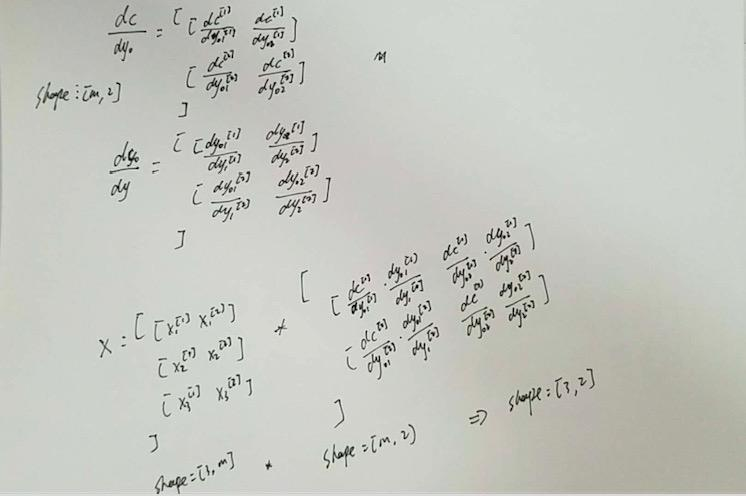 dc/dy₀ = [ [ dc^[1]/dy₀₁^[1]  dc^[1]/dy₀₂^[1] ]
[ dc^[2]/dy₀₁^[2]  dc^[2]/dy₀₂^[2] ]
shape: [m, 2]
]
dy₀/dy = [ [ dy₀₁^[1]/dy₁^[1]  dy₀₂^[1]/dy₂^[1] ]
[ dy₀₁^[2]/dy₁^[2]  dy₀₂^[2]/dy₂^[2] ]
]
X = [ [ x₁^[1] x₁^[2] ] * [ [ dc^[1]/dy₀₁^[1] · dy₀₁^[1]/dy₁^[1]  dc^[1]/dy₀₂^[1] · dy₀₂^[1]/dy₂^[1] ]
[ x₂^[1] x₂^[2] ] [ dc^[2]/dy₀₁^[2] · dy₀₁^[2]/dy₁^[2]  dc^[2]/dy₀₂^[2] · dy₀₂^[2]/dy₂^[2] ]
[ x₃^[1] x₃^[2] ]
] ]
shape=[3,m] * shape=[m,2) ⇒ shape=[3,2]